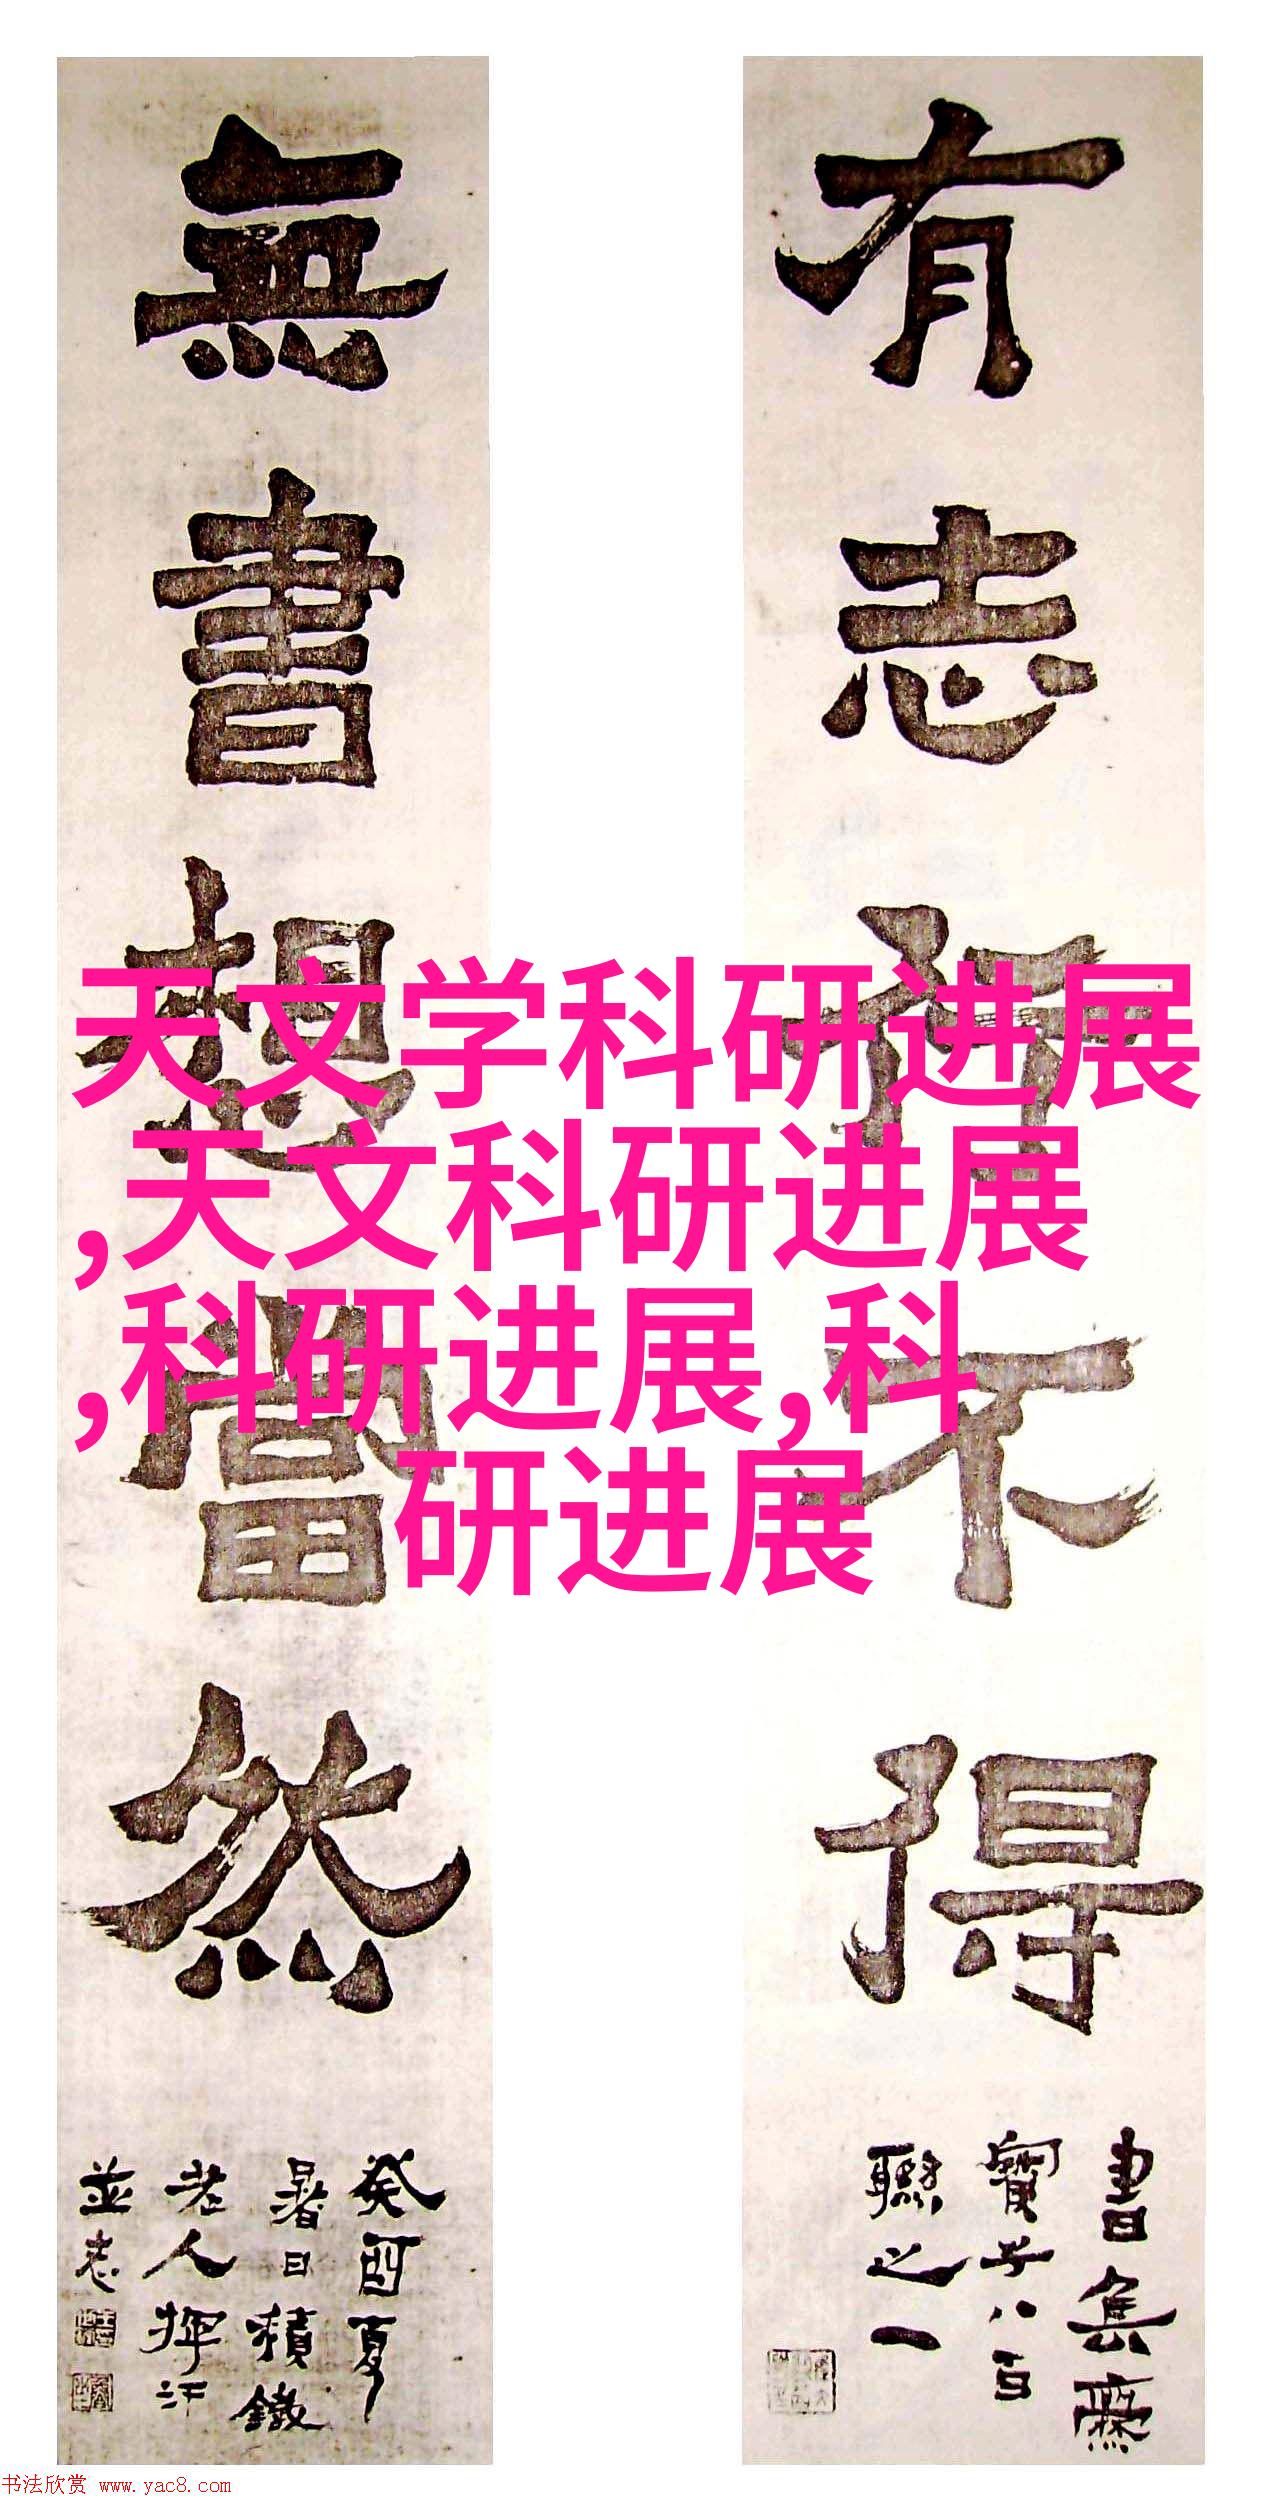 有志何不得
書集齋
寶子八百
聯之一
無書想當然
癸酉夏
暑日積鐵
老人揮汗
並志
天文学科研进展
,天文科研进展
,科研进展,科
研进展
书法欣赏 www.yac8.com